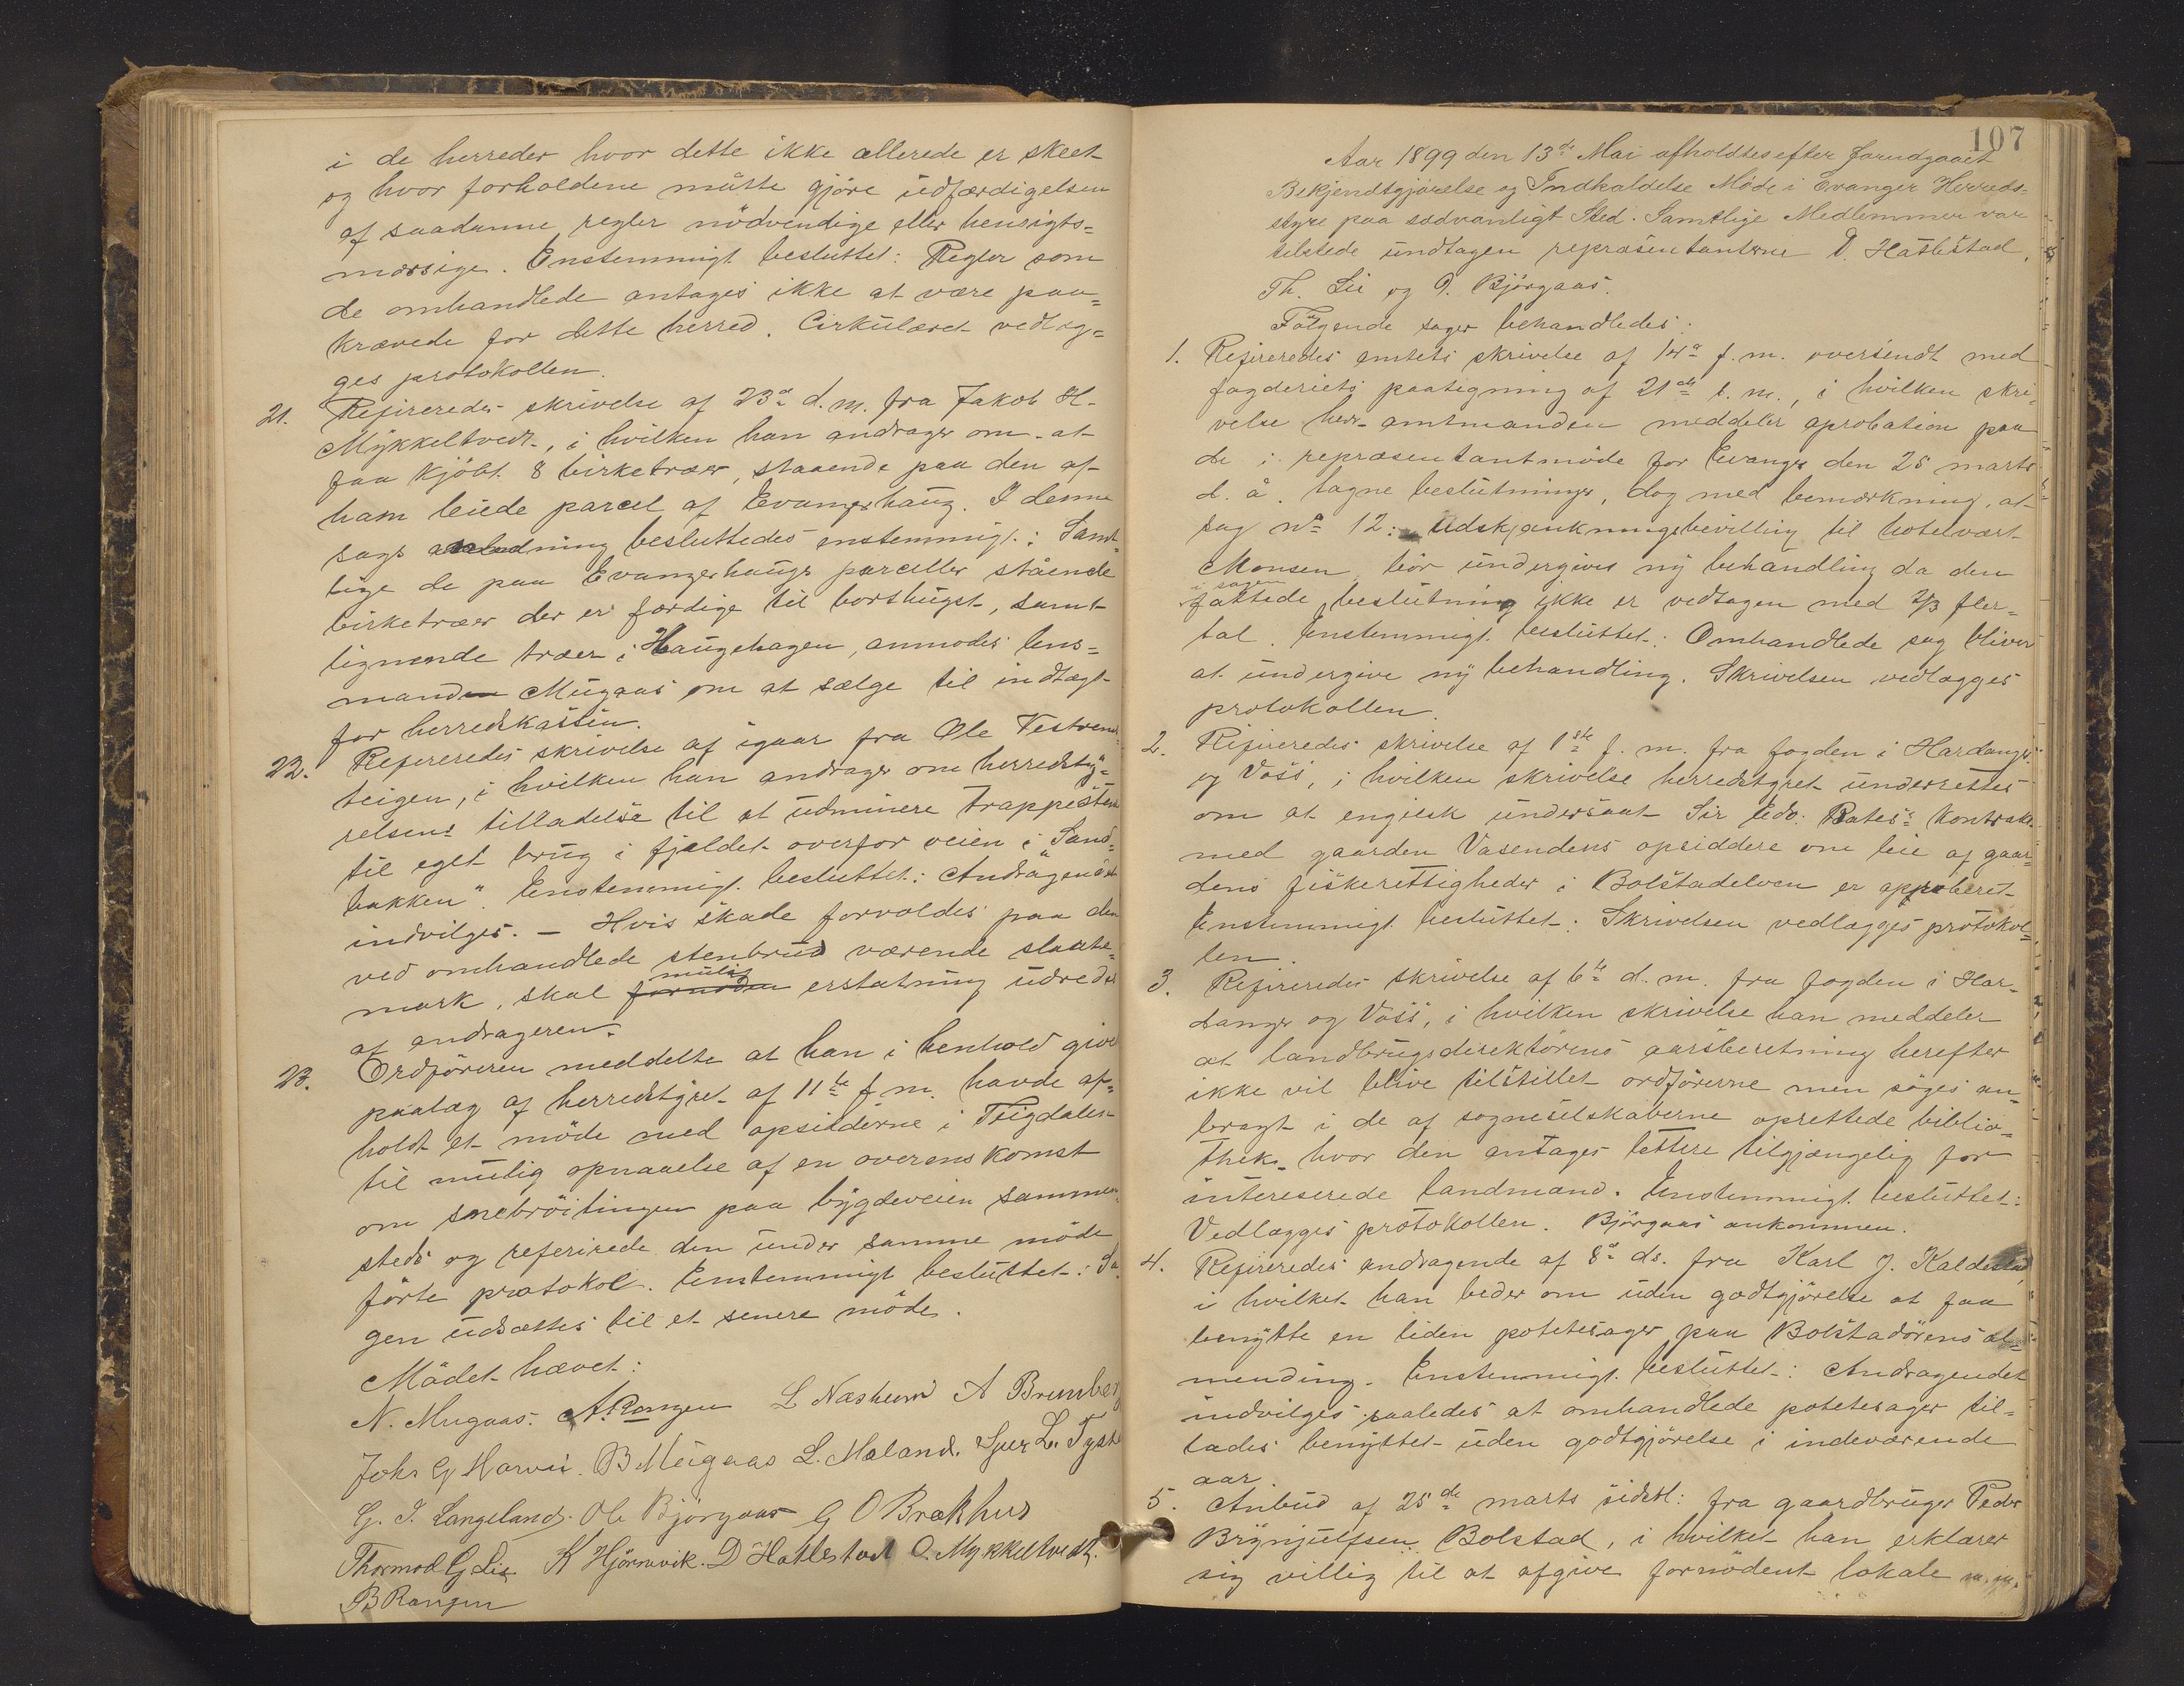 i de herreder hvor dette ikke allerede er skeet
og hvor forholdene måtte gjöre udfærdigelsen
af saadanne regler nödvendige eller hensigts=
mæssige. Enstemmigt besluttet: Regler som
de omhandlede antages ikke at være paa=
krævede for dette herred. Cirkulæret vedlæg=
ges protokollen.
21. Refereredes skrivelse af 23de d.m. fra Jakob H.
Mykkeltvedt, i hvilken han andrager om at
faa kjöbt 8 birketræer, staaende paa den af
ham leiede parcel af Evangerhaug. I denne
sags anledning besluttedes enstemmigt: Samt=
lige de paa Evangerhaugs parceller stående
birketræer der er færdige til borthugst, samt
lignende træer i Haugehagen, anmodes lens=
mand Mugaas om at sælge til indtægt
for herredskassen.
22. Refereredes skrivelse af igaar fra Ole Vestrem=
teigen, i hvilken han andrager om herredsty=
relsens tilladelse til at udminere trappestene
til eget brug i fjeldet overfor veien i "Sand=
bakken". Enstemmigt besluttet: Andragendet
indvilges. – Hvis skade forvoldes paa den
ved omhandlede stenbrud værende slaatte=
mark, skal mulig erstatning udredes
af andrageren.
23. Ordföreren meddelte at han i henhold givet
paalæg af herredstyret af 11te f.m. havde af=
holdt et möde med opsidderne i Teigdalen
til mulig opnaaelse af en overenskomst
om snebröitingen paa bygdeveien sammen=
steds og refererede den under samme möde
förte protokol. Enstemmigt besluttet: Sa=
gen udsættes til et senere möde.
Mödet hævet:
N. Mugaas. A. Rongen L Næsheim A Brunborg
Johs G Horvei. B Mugaas L. Møland. Sjur L. Tyssen
G. I. Langeland. Ole Björgaas G O Brækhus
Thormod G Lie K Hjörnevik. D Hatlestad O. Mykkeltvedt.
B Rongen
107
Aar 1899 den 13de Mai afholdtes efter forudgaaet
Bekjendtgjörelse og Indkaldelse Möde i Evanger Herreds=
styre paa sædvanligt Sted. Samtlige Medlemmer var
tilstede undtagen repræsentanterne D. Hatlestad,
Th. Lie og O. Björgaas.
Fölgende sager behandledes:
1. Refereredes amtets skrivelse af 14de f.m. oversendt med
fogderiets paategning af 21de s.m., i hvilken skri=
velse herr amtmanden meddeler aprobation paa
de i repræsentantmöde for Evanger den 25 marts
d. å. tagne beslutninger, dog med bemærkning, at
sag No 12: Udskjænkningsbevilling til hotelvært
Monsen, bör undergives ny behandling da den
i sagen
fattede beslutning ikke er vedtagen med 2/3 fler=
tal. Enstemmigt besluttet: Omhandlede sag bliver
at undergive ny behandling. Skrivelsen vedlægges
protokollen.
2. Refereredes skrivelse af 1ste f.m. fra fogden i Hardanger
og Voss, i hvilken skrivelse herredstyret underrettes
om at engelsk undersaat Sir Edw: Bates's kontrakt
med gaarden Vasendens opsiddere om leie af gaar=
dens fiskerettigheder i Bolstadelven er approberet.
Enstemmigt besluttet: Skrivelsen vedlægges protokol=
len.
3. Refereredes skrivelse af 6te d.m. fra fogden i Har=
danger og Voss, i hvilken skrivelse han meddeler
at landbrugsdirektörens aarsberetning herefter
ikke vil blive tilstillet ordförerne men söges an=
bragt i de af sogneselskaberne oprettede biblio=
thek, hvor den antages lettere tilgjængelig for
intereserede landmænd. Enstemmigt besluttet:
Vedlægges protokollen. Björgaas ankommen.
4. Refereredes andragende af 8de ds. fra Karl J. Kaldestad
i hvilket han beder om uden godtgjörelse at faa
benytte en liden potetesager paa Bolstadörens al=
mending. Enstemmigt besluttet: Andragendet
indvilges saaledes at omhandlede potetesager til=
lades benyttet uden godtgjörelse i indeværende
aar.
5. Anbud af 25de marts sidstl: fra gaardbruger Peder
Brynjulfsen Bolstad, i hvilket han erklærer
sig villig til at afgive fornödent lokale m.m.